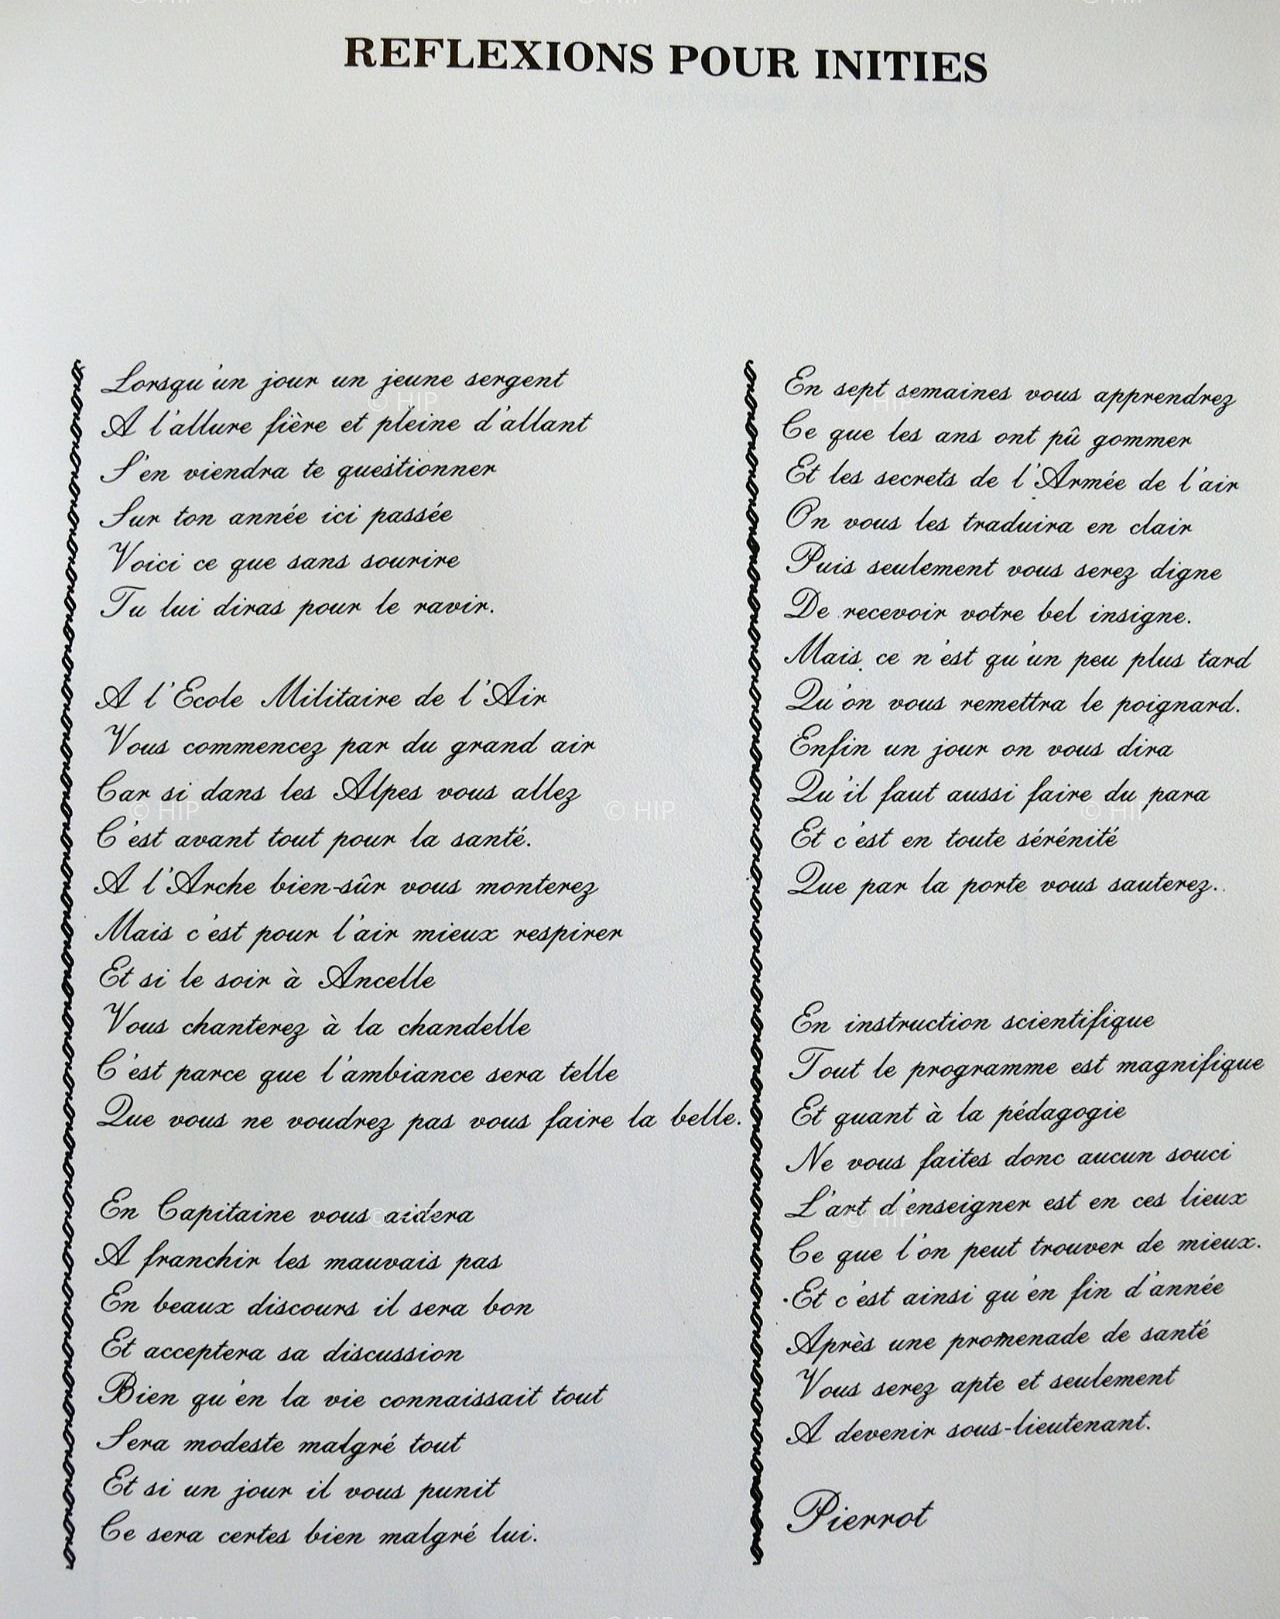 REFLEXIONS POUR INITIES
Lorsqu'un jour un jeune sergent
A l'allure fière et pleine d'allant
S'en viendra te questionner
Sur ton année ici passée
Voici ce que sans sourire
Tu lui diras pour le ravir.
A l'Ecole Militaire de l'Air
Vous commencez par du grand air
Car si dans les Alpes vous allez
C'est avant tout pour la santé.
A l'Arche bien-sûr vous monterez
Mais c'est pour l'air mieux respirer
Et si le soir à Ancelle
Vous chanterez à la chandelle
C'est parce que l'ambiance sera telle
Que vous ne voudrez pas vous faire la belle.
En Capitaine vous aidera
A franchir les mauvais pas
En beaux discours il sera bon
Et acceptera sa discussion
Bien qu'en la vie connaissait tout
Sera modeste malgré tout
Et si un jour il vous punit
Ce sera certes bien malgré lui.
En sept semaines vous apprendrez
Ce que les ans ont pû gommer
Et les secrets de l'Armée de l'air
On vous les traduira en clair
Puis seulement vous serez digne
De recevoir votre bel insigne.
Mais ce n'est qu'un peu plus tard
Qu'on vous remettra le poignard.
Enfin un jour on vous dira
Qu'il faut aussi faire du para
Et c'est en toute sérénité
Que par la porte vous sauterez.
En instruction scientifique
Tout le programme est magnifique
Et quant à la pédagogie
Ne vous faites donc aucun souci
L'art d'enseigner est en ces lieux
Ce que l'on peut trouver de mieux.
Et c'est ainsi qu'en fin d'année
Après une promenade de santé
Vous serez apte et seulement
A devenir sous-lieutenant.
Pierrot
© HIP
© HIP
© HIP
© HIP
© HIP
© HIP
© HIP